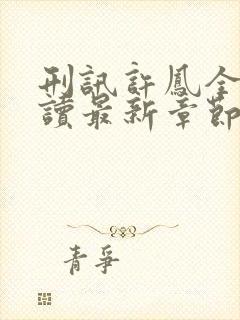 刑訊許鳳全
讀最新章節
青爭